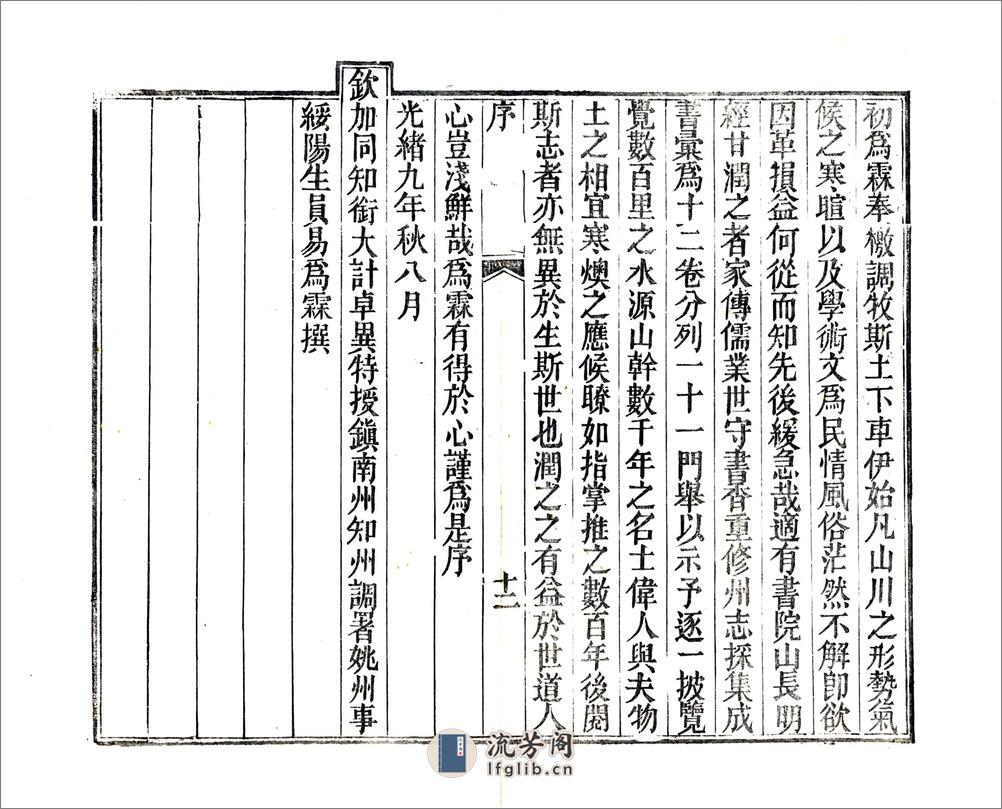 初爲霖奉檄調牧斯土下車伊始凡山川之形勢氣
候之寒暄以及學術文爲民情風俗茫然不解卽欲
因革損益何從而知先後緩急哉適有書院山長明
經甘潤之者家傳儒業世守書香重修州志探集成
書彙爲十二卷分列一十一門舉以示予逐一披覽
覺數百里之水源山幹數千年之名士偉人與夫物
土之相宜寒燠之應候瞭如指掌推之數百年後閱
斯志者亦無異於生斯世也潤之之有益於世道人
序
十二
心豈淺鮮哉爲霖有得於心謹爲是序
光緒九年秋八月
欽加同知銜大計卓異特授鎮南州知州調署姚州事
綏陽生員易爲霖撰
流芳阁
lfglib.cn